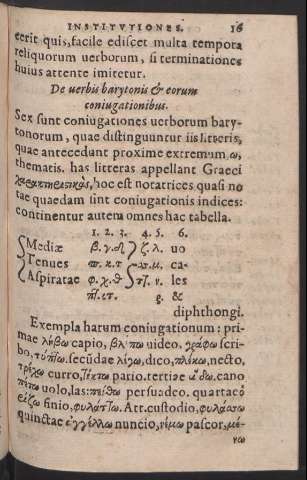 INSTITVTIONES. 16
cerit quis, facile ediscet multa tempora
reliquorum uerborum, si terminationes
huius attente imitetur.
De uerbis barytonis & eorum
coniugationibus.
Sex sunt coniugationes uerborum bary-
tonorum, quae distinguuntur iis litteris,
quae antecedunt proxime extremum ω,
thematis. has litteras appellant Graeci
χαρακτηριστικάς, hoc est notatrices quasi no
tae quaedam sint coniugationis indices:
continentur autem omnes hac tabella.
1. 2. 3. 4. 5. 6.
Mediæ β. γ. δ ζ. λ. uo
Tenues π. κ. τ μ. ca-
Aspiratae φ. χ. θ ν. les
πτ. κτ. ρ. &
diphthongi.
Exempla harum coniugationum: pri-
mae λείβω capio, βλέπω uideo. γράφω scri-
bo, τύπτω. secūdae λέγω, dico, πλέκω, necto,
τρέχω curro, τίκτω pario. tertiae ᾄδω. cano
uolo, las: πείθω persuadeo. quartae
finio, φυλάττω. Att. custodio, φυλάσσω
quinctae ἀγγέλλω nuncio, νέμω pascor, μέ-
νω